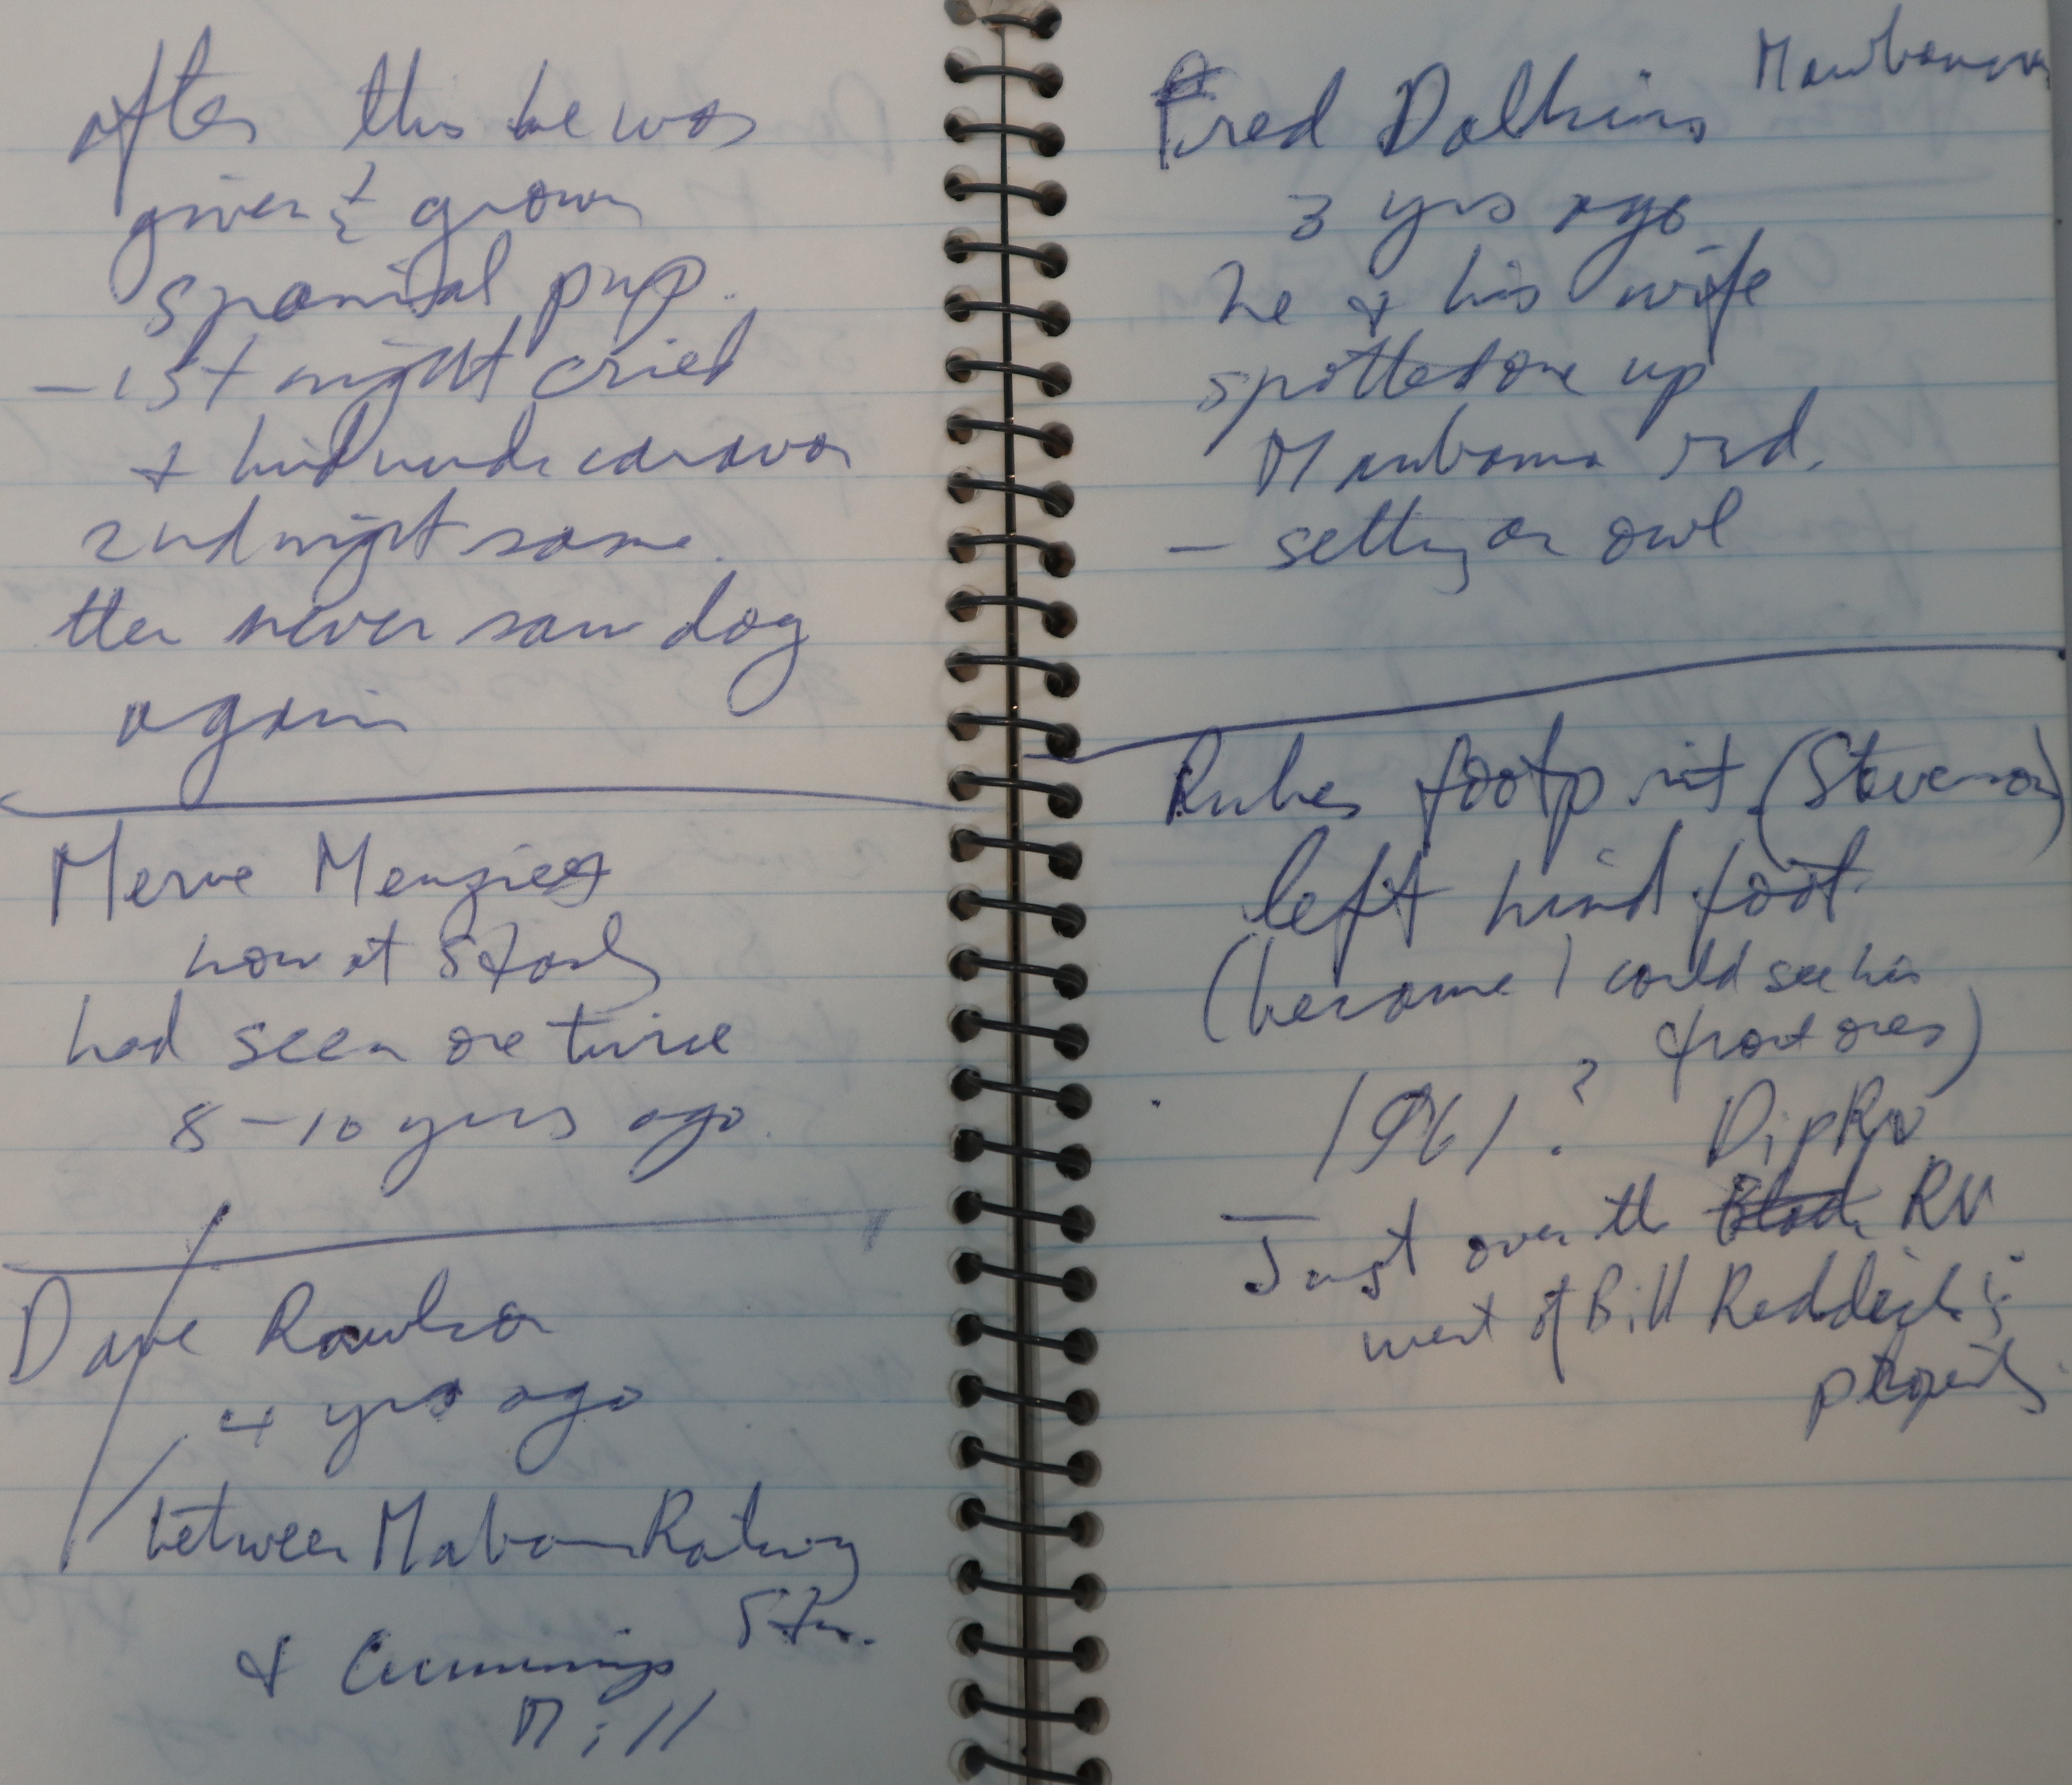 After this he was
given ½ grown
spanial pup.
– 1st night cried
+ hid under caravan
2nd night same.
then never saw dog
again
Merve Menzies
now at Stanley
had seen one twice
8–10 yrs ago.
Dave Rawlson
4 yrs ago
between Mabanna Railway
Stn.
& Cummings
Mill
Mawbanna
Fred Dalkins
3 yrs ago
he & his wife
spotted one up
Mawbanna rd.
– setting on owl
Rubes footprint (Stevenson)
left hind foot
(because I could see his
front ones)
1961 ? Dip Rv
Just over the Black RV
west of Bill Reddick's
property